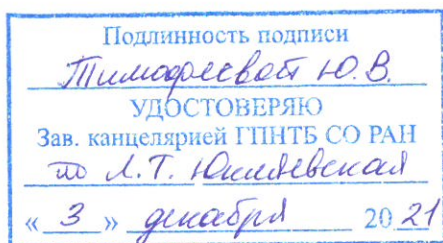 Подлинность подписи
Тимофеевой Ю.В.
УДОСТОВЕРЯЮ
Зав. канцелярией ГПНТБ СО РАН
Л.Т.
« 3 » декабря 20 21